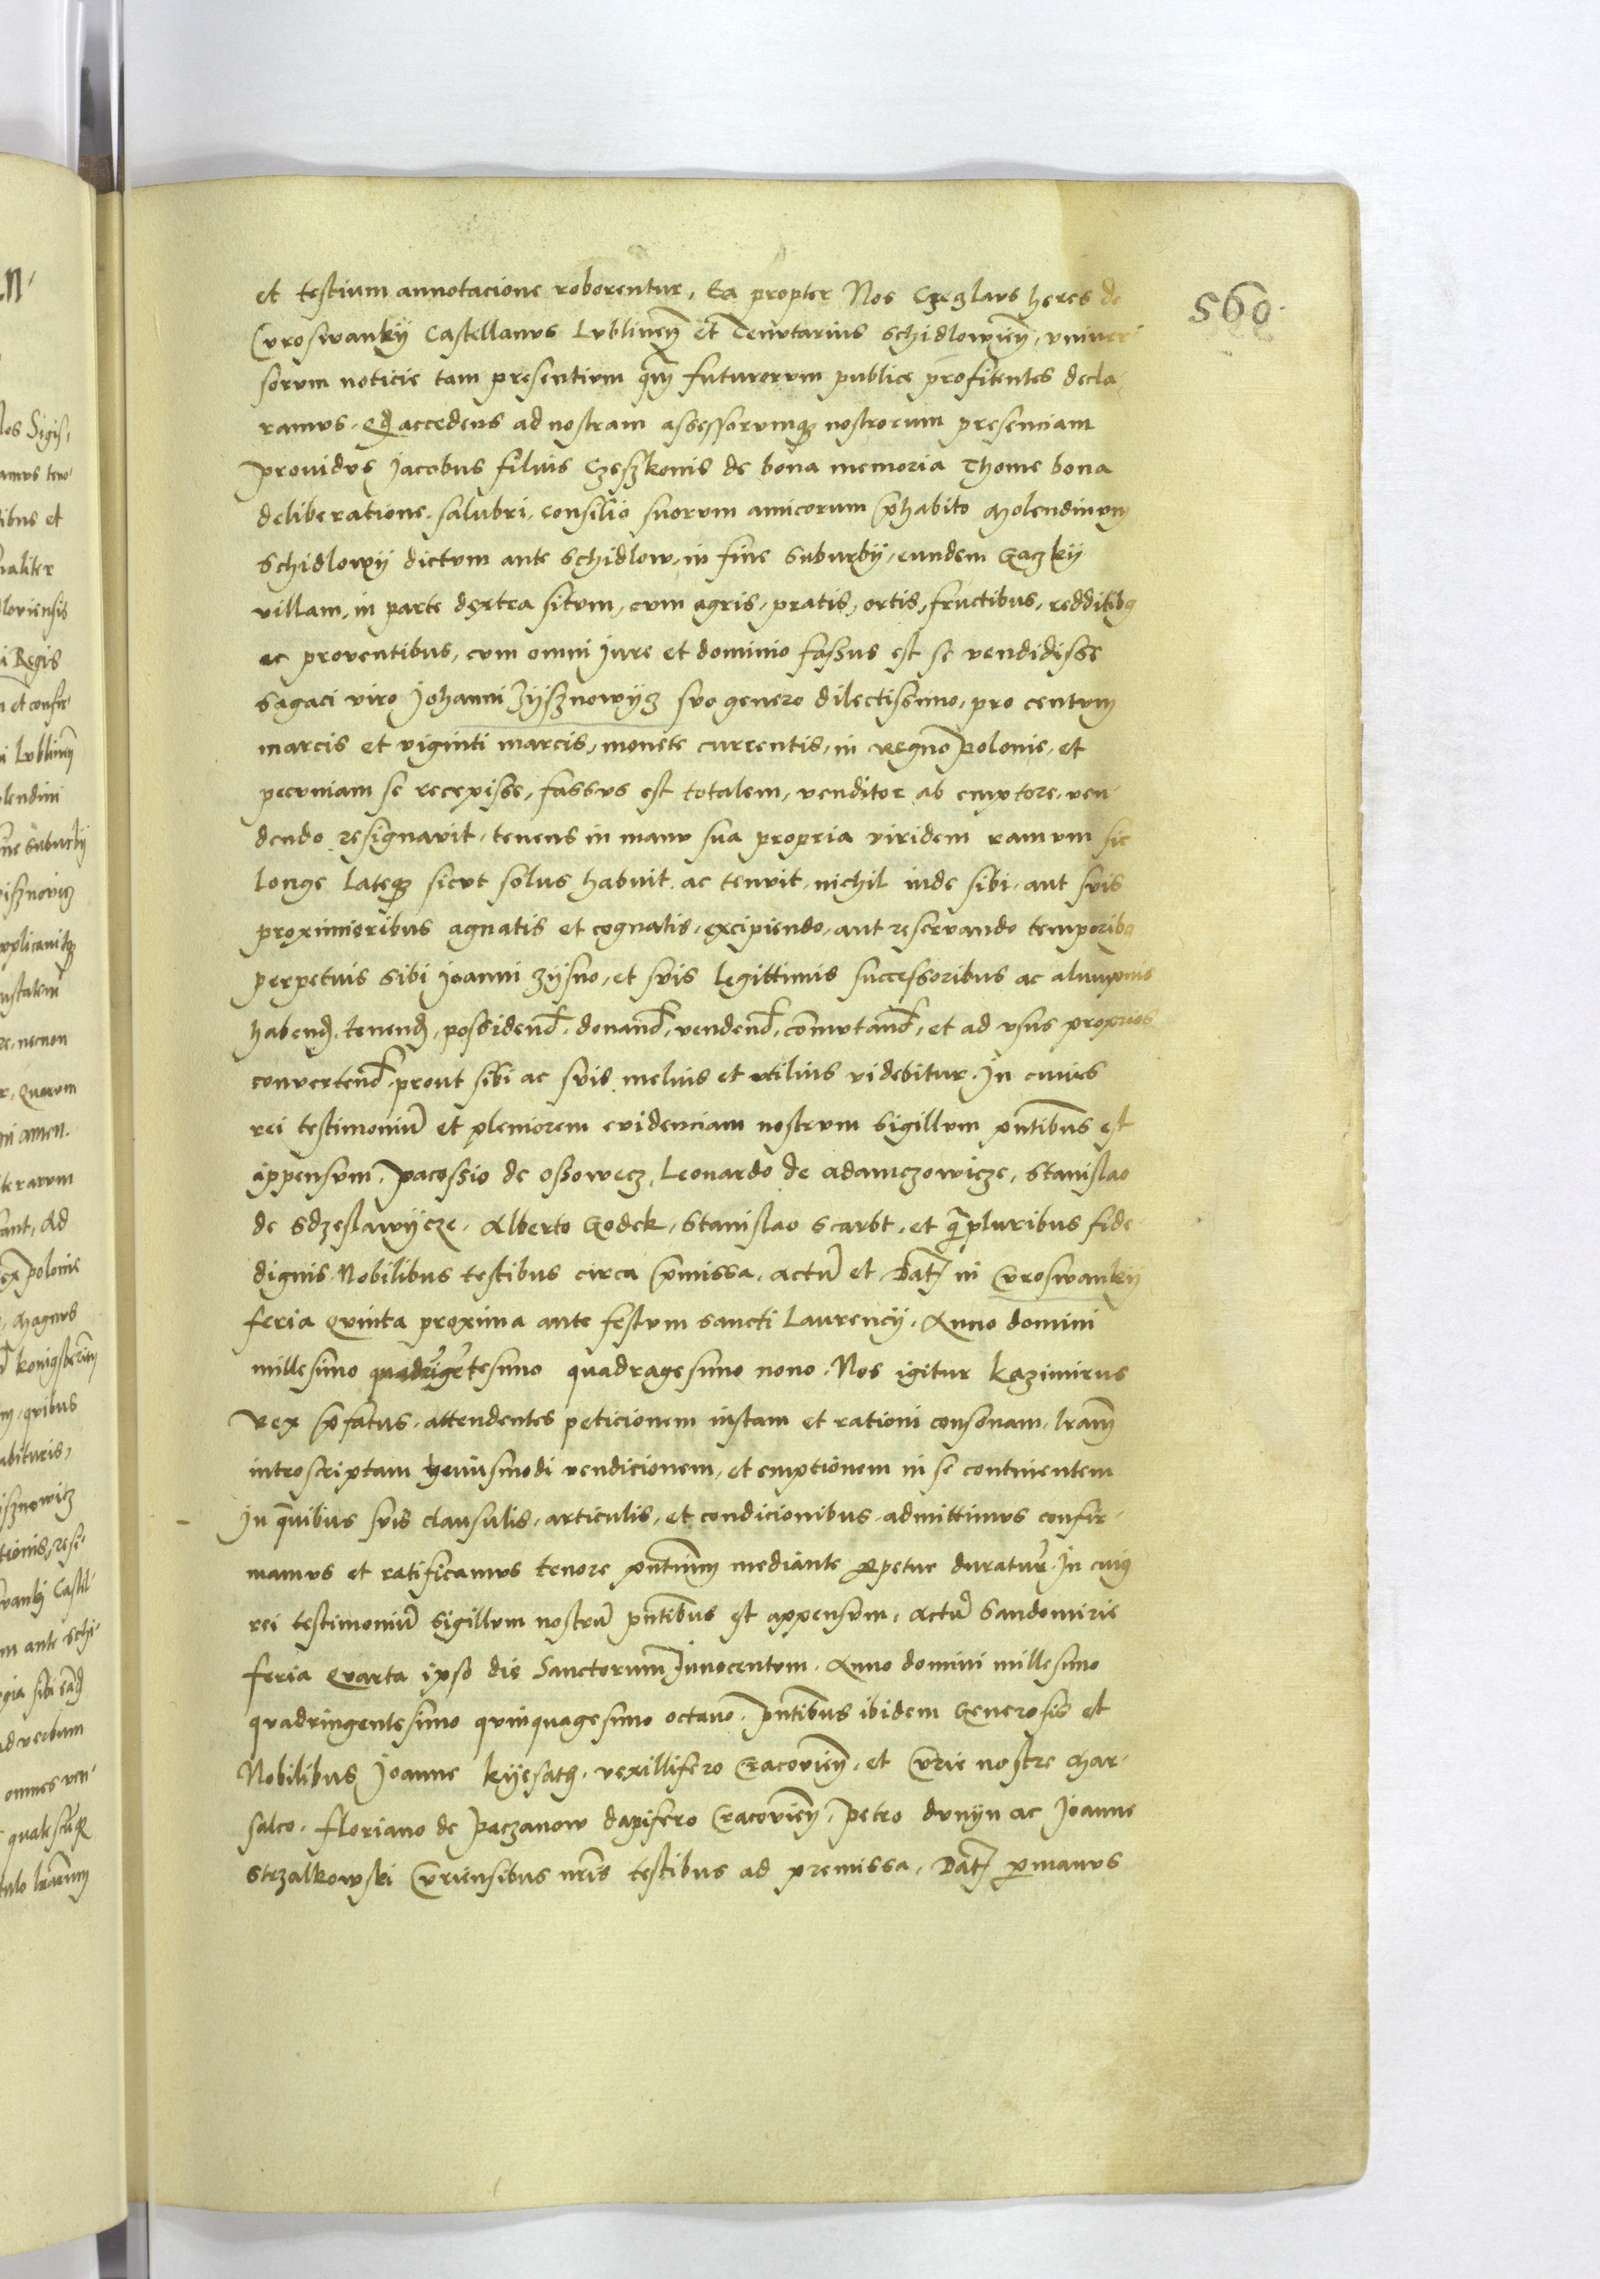 560.
et testium annotacione roborentur, Ea propter Nos Czeglaus heres de
Curoswankÿ Castellanus Lublineñ et Tenutarius schidlowieñ, univer
sorum noticie tam presentium qm̃ futurorum publice profitentes decla-
ramus, eqd accedens ad nostram assessorumqꝫ nostrorum presenciam
Prouidus Jacobus filius Czeszkonis de bona memoria Thome bona
deliberatione, salubri, consilio suorum amicorum p̃habito Molendinum
Schidlowÿ dictum ante Schidlow, in fine suburbÿ, eundem Gaczkÿ
villam, in parte dextra situm, cum agris, pratis, ortis, fructibus, redditibꝫ
ac proventibus, cum omni Jure et dominio fassus est se vendidisse
sagaci viro Johanni Zÿsznowÿcz suo genero dilectissimo, pro centum
marcis et viginti marcis, monete currentis, in regno Polonie, et
pecuniam se recepisse, fassus est totalem, venditor ab emptore, ven-
dendo resignavit, tenens in manu sua propria viridem ramum sic
longe lateqꝫ sicut solus habuit ac tenuit, nichil inde sibi, aut suis
proximioribus agnatis et cognatis, excipiendo, aut reservando temporibꝫ
perpetuis sibi Joanni Zÿsno, et suis legittimis successoribus ac alumpnis
habend, tenend, possidend, donand, vendend, com̃utand, et ad usus proprios
convertend, prout sibi ac suis melius et utilius videbitur. In cuius
rei testimoniũ et pleniorem evidenciam nostrum sigillum pñtibus est
appensum, Pacossio de Ossowecz, Leonardo de Adamczowicze, Stanislao
de Sdzeslawÿcze, Alberto Godek, Stanislao Scarbt, et q̃pluribus fide-
dignis Nobilibus testibus circa p̃missa, actũ et Dat̃ in Curoswankÿ
feria Quinta proxima ante festum sancti Laurencÿ, Anno domini
millesimo quadrigetesimo quadragesimo nono. Nos igitur Kazimirus
Rex p̃fatus, attendentes peticionem iustam et rationi consonam, lrãm
introscriptam huiusmodi vendicionem, et emptionem in se continentem
In q̃uibus suis clausulis, articulis, et condicionibus admittimus confir-
mamus et ratificamus tenore pñtium mediante ꝑpetue duratur̃. In cuiꝫ
rei testimoniũ sigillum nostrũ pñtibus est appensum, actũ Sandomirie
feria Quarta ipso die Sanctorum Jnnocentum, Anno domini millesimo
quadringentesimo quinquagesimo octavo, Pñtibus ibidem Generosis et
Nobilibus Joanne Kÿesath, vexillifero Cracovieñ, et Curie nostre Mar-
salco, Floriano de Paczanow dapifero Cracovieñ, Petro Dunÿn ac Joanne
Strzalkowski Curiensibus nr̃is testibus ad premissa, Dat̃ ꝑ manus